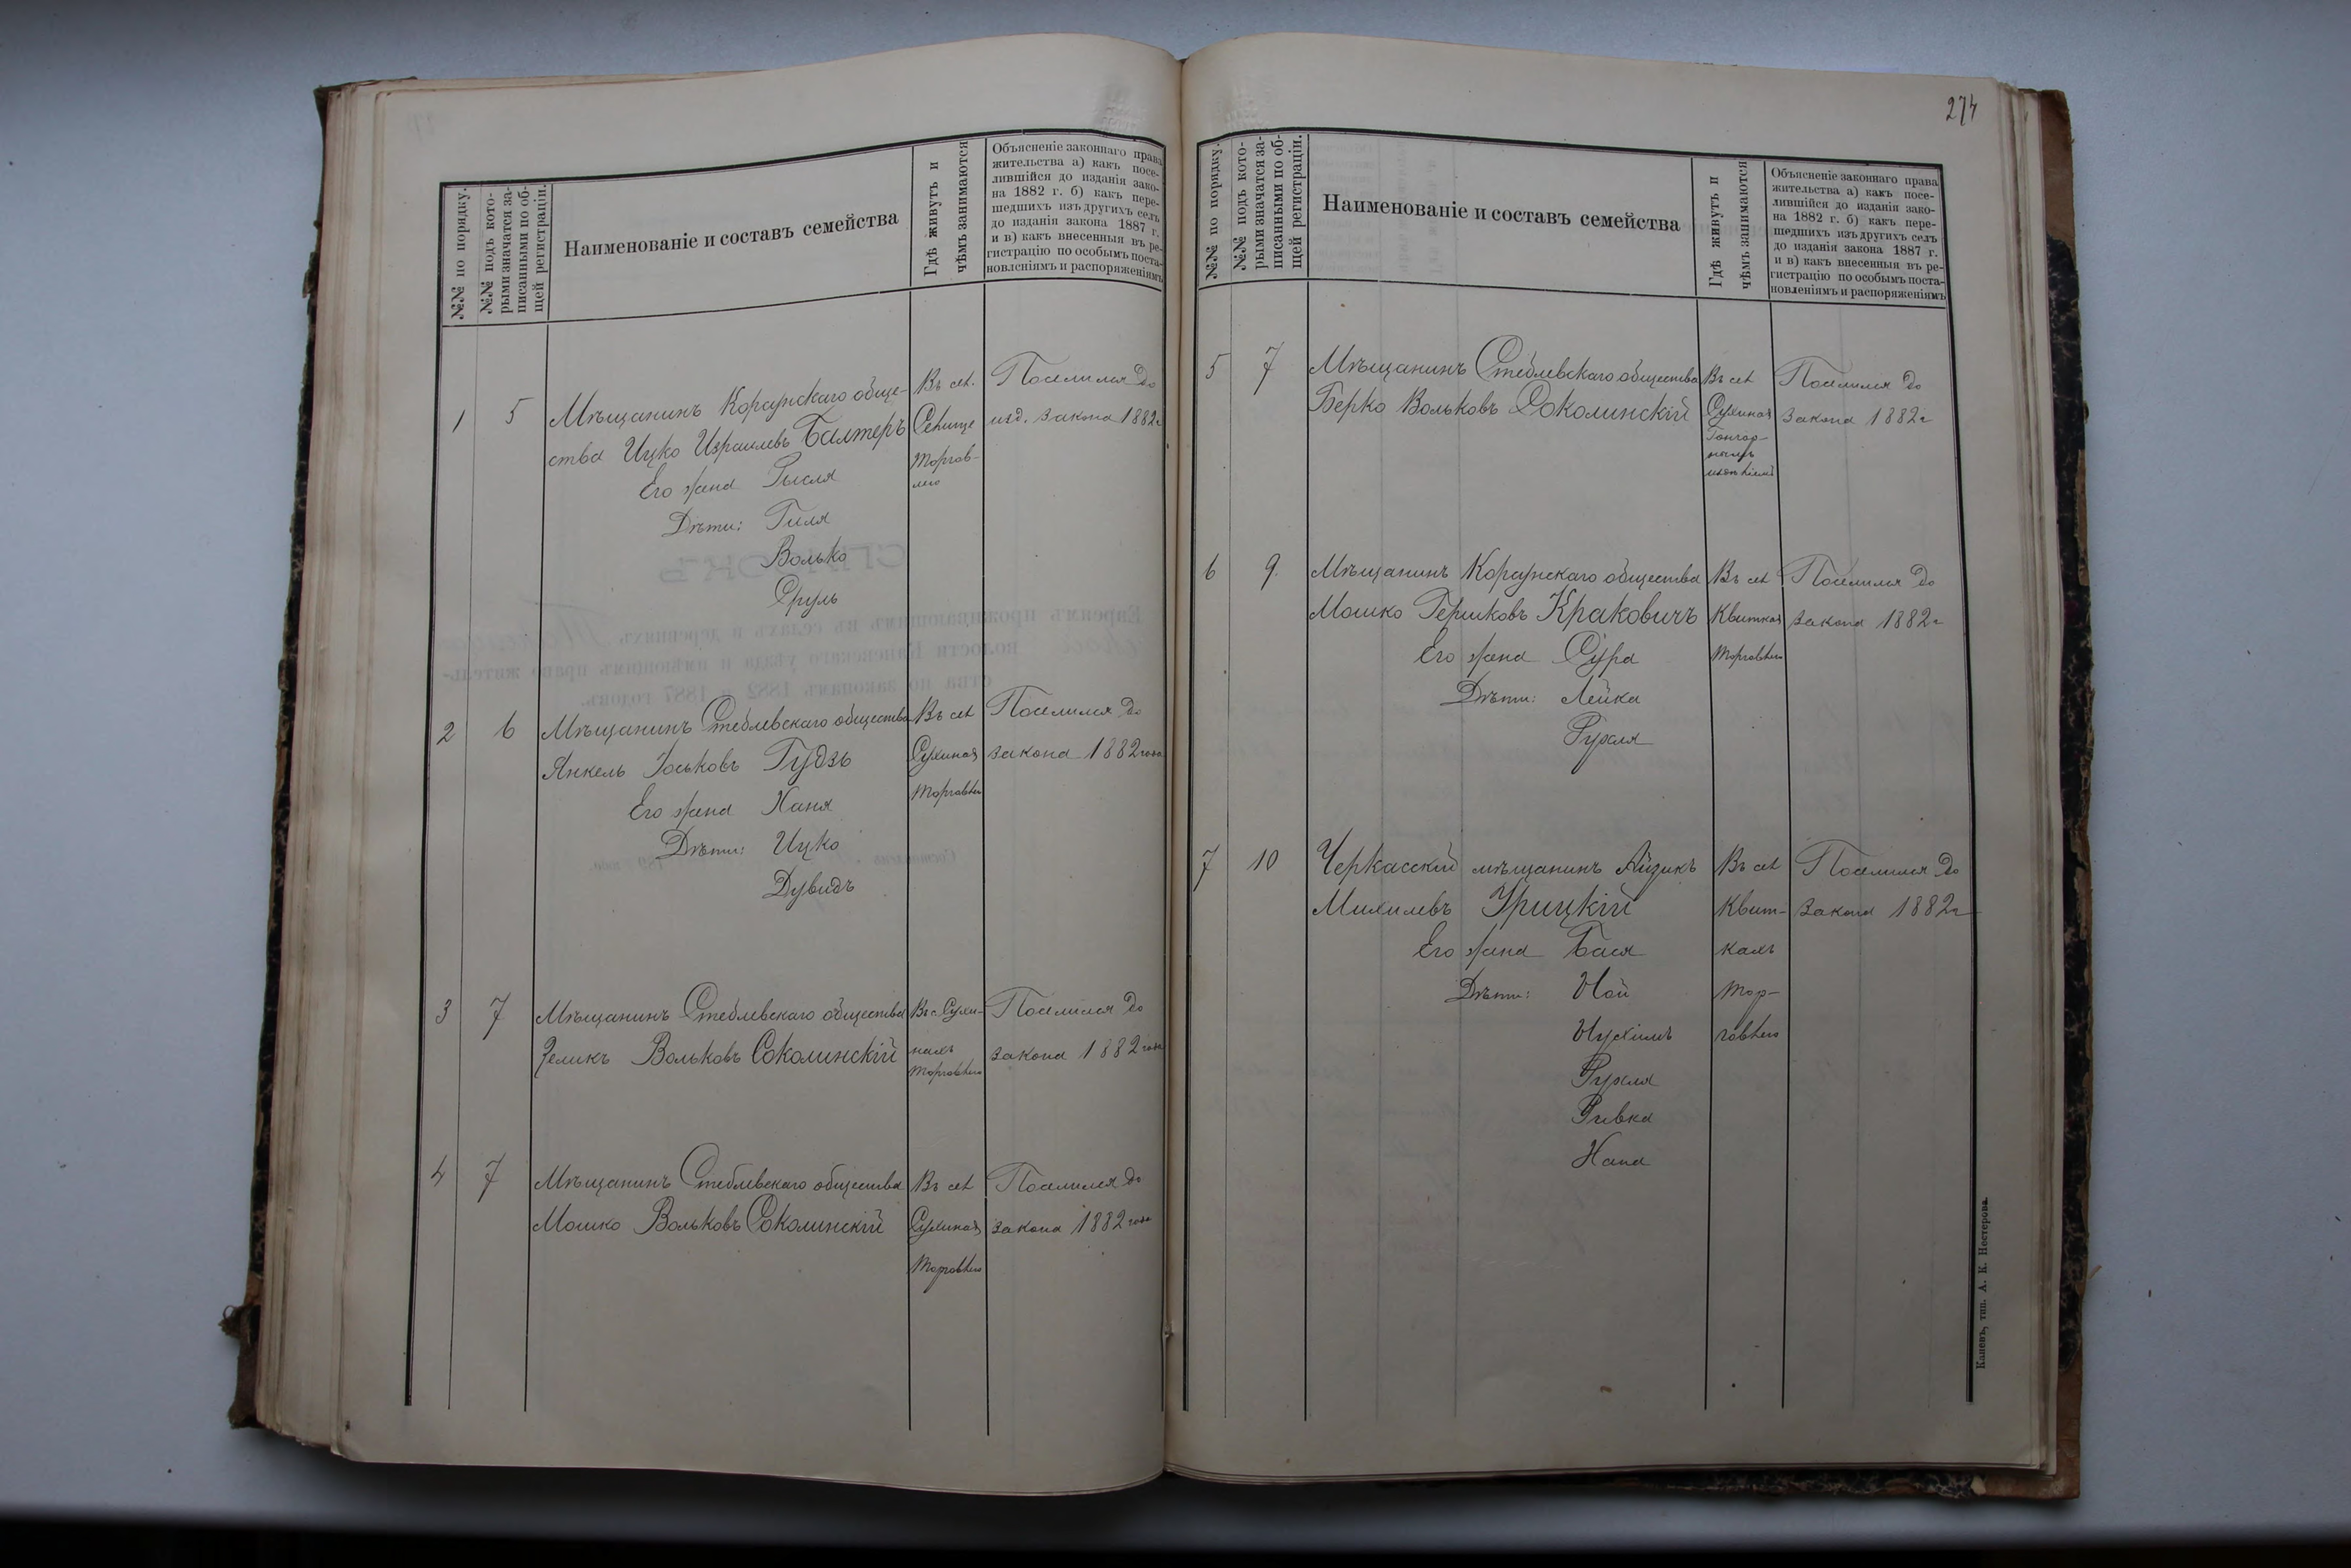 №№ по порядку.
№№ подъ кото-
рыми значатся за-
писанными по об-
щей регистраціи.
Наименованіе и составъ семейства
Гдѣ живутъ и
чѣмъ занимаются
Объясненіе законнаго права
жительства а) какъ посе-
лившійся до изданія зако-
на 1882 г. б) какъ пере-
шедшихъ изъ другихъ селъ
до изданія закона 1887 г.
и в) какъ внесенныя въ ре-
гистрацію по особымъ поста-
новленіямъ и распоряженіямъ
1 5 Мѣщанинъ Корсунскаго обще-
ства Ицко Израилевъ Балтеръ
Его жена Рысля
Дѣти: Гиля
Волько
Сруль
Въ сел.
Сѣнище
торгов-
лею
Поселился до
изд. закона 1882г
2 6 Мѣщанинъ Стеблевскаго общества
Янкель Іоськовъ Гудзь
Его жена Ханя
Дѣти: Ицко
Дувидъ
Въ сел
Сухинах
торговлею
Поселился до
закона 1882 года
3 7 Мѣщанинъ Стеблевскаго общества
Зеликъ Вольковъ Соколинскій
Въ с. Сухи-
нахъ
торговлею
Поселился до
закона 1882 года
4 7 Мѣщанинъ Стеблевскаго общества
Мошко Вольковъ Соколинскій
Въ сел
Сухинах
торговлею
Поселился до
закона 1882 года
274
№№ по порядку.
№№ подъ кото-
рыми значатся за-
писанными по об-
щей регистраціи.
Наименованіе и составъ семейства
Гдѣ живутъ и
чѣмъ занимаются
Объясненіе законнаго права
жительства а) какъ посе-
лившійся до изданія зако-
на 1882 г. б) какъ пере-
шедшихъ изъ другихъ селъ
до изданія закона 1887 г.
и в) какъ внесенныя въ ре-
гистрацію по особымъ поста-
новленіямъ и распоряженіямъ
5 7 Мѣщанинъ Стеблевскаго общества
Берко Вольковъ Соколинскій
Въ сел
Сухинах
Поселился до
закона 1882г
6 9. Мѣщанинъ Корсунскаго общества
Мошко Гершковъ Краковичъ
Его жена Сура
Дѣти: Лейка
Рухля
Въ сел
Квитках
торговлею
Поселился до
закона 1882г
7 10 Черкасскій мѣщанинъ Айзикъ
Михилевъ Урицкій
Его жена Бася
Дѣти: Ной
Нухимъ
Рухля
Ривка
Хана
Въ сел
Квит-
кахъ
тор-
говлею
Поселился до
закона 1882г
Каневъ, тип. А. К. Нестерова.